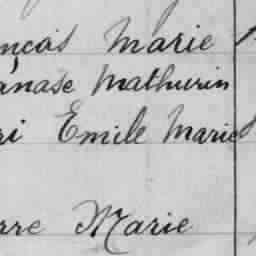 nçois Marie
anase Mathurin
ri Emile Marie
rre Marie